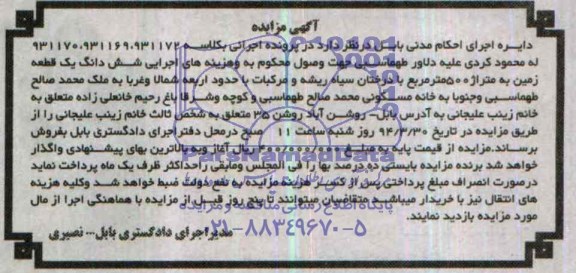 آگهی مزایده
دایـــره اجرای احکام مدنی بابـــل درنظر دارد در پرونده اجرائی بکلاسه ۹۳۱۱۷۲-۹۳۱۱۶۹-۹۳۱۱۷۰
له محمود کردی علیه دلاور طهماسبی جهت وصول محکوم به وهزینه های اجرایی شـــش دانگ یک قطعه
زمین به متراژ ۵۰۰مترمربع با درختان سیاه ریشه و مرکبات با حدود اربعه شمالا وغربا به ملک محمد صالح
طهماسبی وجنوبا به خانه مســکونی محمد صالح طهماسبی و کوچه وشــرقا باغ رحیم خانعلی زاده متعلق به
خانم زینب علیجانی به آدرس بابل- روشـن آباد روشن ۳۵ متعلق به شخص ثالث خانم زینب علیجانی را از
طریق مزایده در تاریخ ۹۴/۳/۳۰ روز شنبه ساعت ۱۱ صبح درمحل دفتر اجرای دادگستری بابل بفروش
برســاند.مزایده از قیمت پایه به مبلغ ریال آغاز وبه بالاترین بهای پیشنهادی واگذار
خواهد شد برنده مزایده بایستی ده درصد بها را فی المجلس ومابقی راحداکثر ظرف یک ماه پرداخت نماید
درصورت انصراف مبلغ پرداختی پس از کســر هزینه مزایده به نفع دولت ضبط خواهد شــد وکلیه هزینه
های انتقال نیز با خریدار میباشـد متقاضیان میتوانند تا پنج روز قبــل از مزایده با هماهنگی اجرا از مال
مورد مزایده بازدید نمایند.
مدیراجرای دادگستری بابل... نصیری
ParsNamadData
پایگاه اطلاع رسانی مناقصه و مزایده
۰۲۱-۸۸۳۴۹۶۷۰-۵